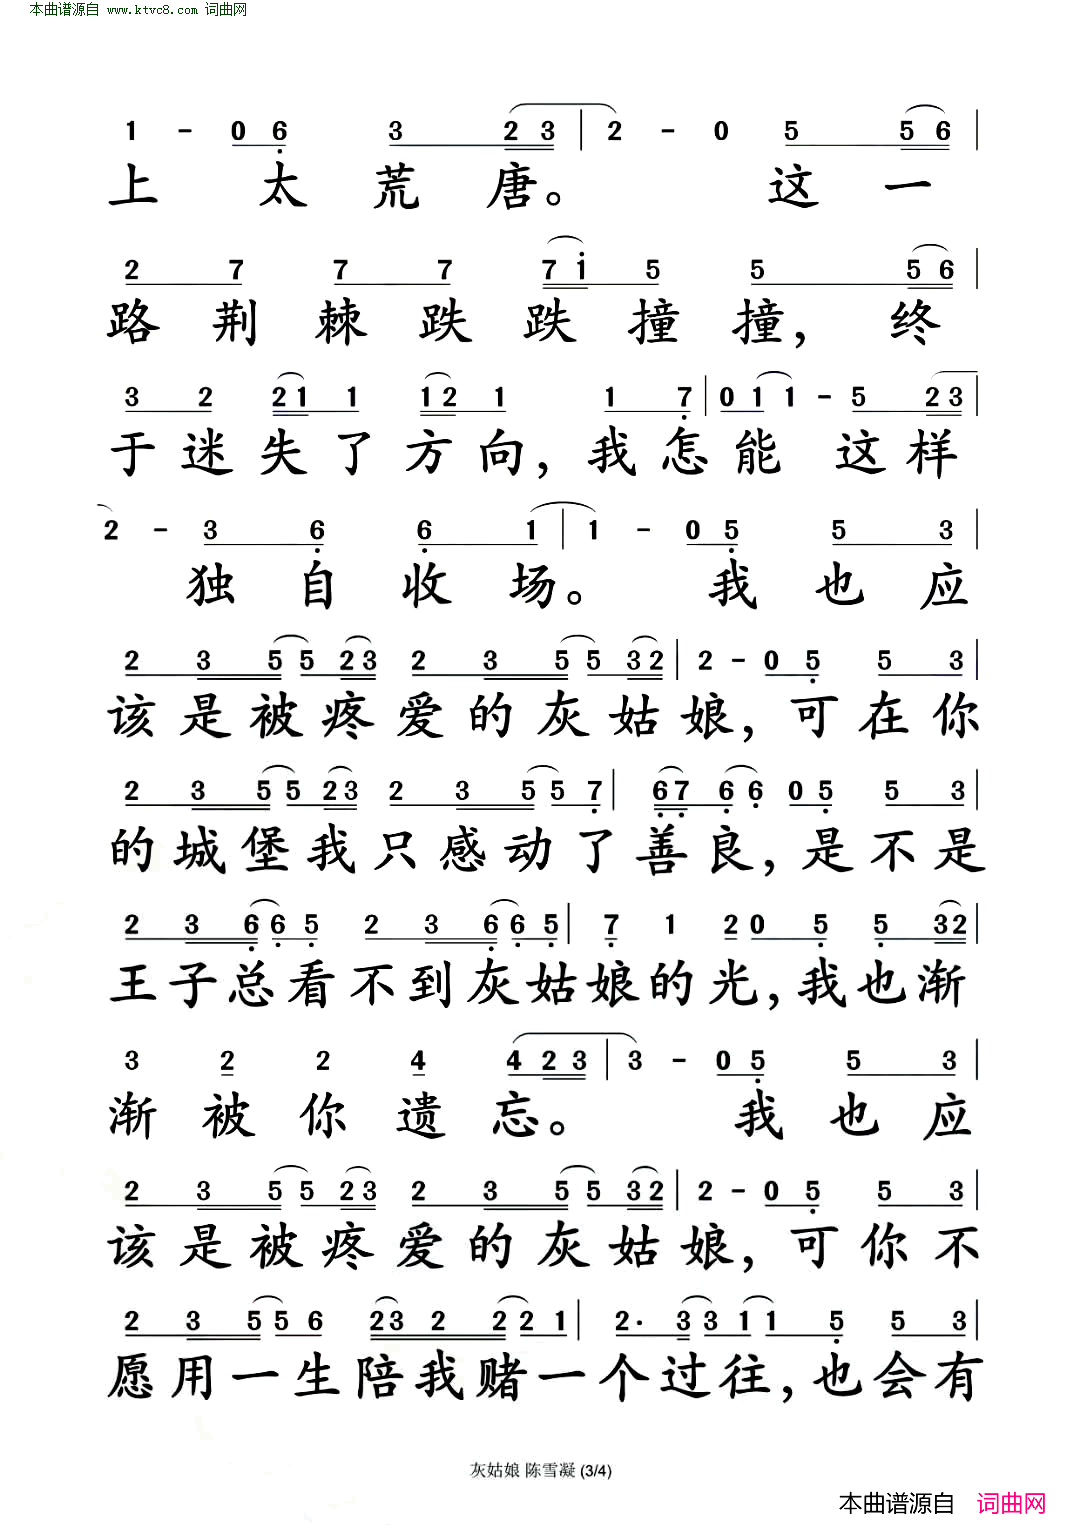 本曲谱源自 www.ktvc8.com 词曲网
1 - 0 6 3 2 3 | 2 - 0 5 5 6 |
上 太 荒 唐。 这 一
2 7 7 7 7 i 5 5 5 6 |
路 荆 棘 跌 跌 撞 撞， 终
3 2 2 1 1 1 2 1 1 7 | 0 1 1 - 5 2 3 |
于 迷 失 了 方 向， 我 怎 能 这 样
2 - 3 6 6 1 | 1 - 0 5 5 3 |
独 自 收 场。 我 也 应
2 3 5 5 2 3 2 3 5 5 3 2 | 2 - 0 5 5 3 |
该 是 被 疼 爱 的 灰 姑 娘， 可 在 你
2 3 5 5 2 3 2 3 5 5 7 | 6 7 6 6 0 5 5 3 |
的 城 堡 我 只 感 动 了 善 良， 是 不 是
2 3 6 6 5 2 3 6 6 5 | 7 1 2 0 5 5 3 2 |
王 子 总 看 不 到 灰 姑 娘 的 光， 我 也 渐
3 2 2 4 4 2 3 | 3 - 0 5 5 3 |
渐 被 你 遗 忘。 我 也 应
2 3 5 5 2 3 2 3 5 5 3 2 | 2 - 0 5 5 3 |
该 是 被 疼 爱 的 灰 姑 娘， 可 你 不
2 3 5 5 6 2 3 2 2 2 1 | 2· 3 3 1 1 5 5 3 |
愿 用 一 生 陪 我 赌 一 个 过 往， 也 会 有
灰姑娘 陈雪凝 (3/4)
本曲谱源自 词曲网